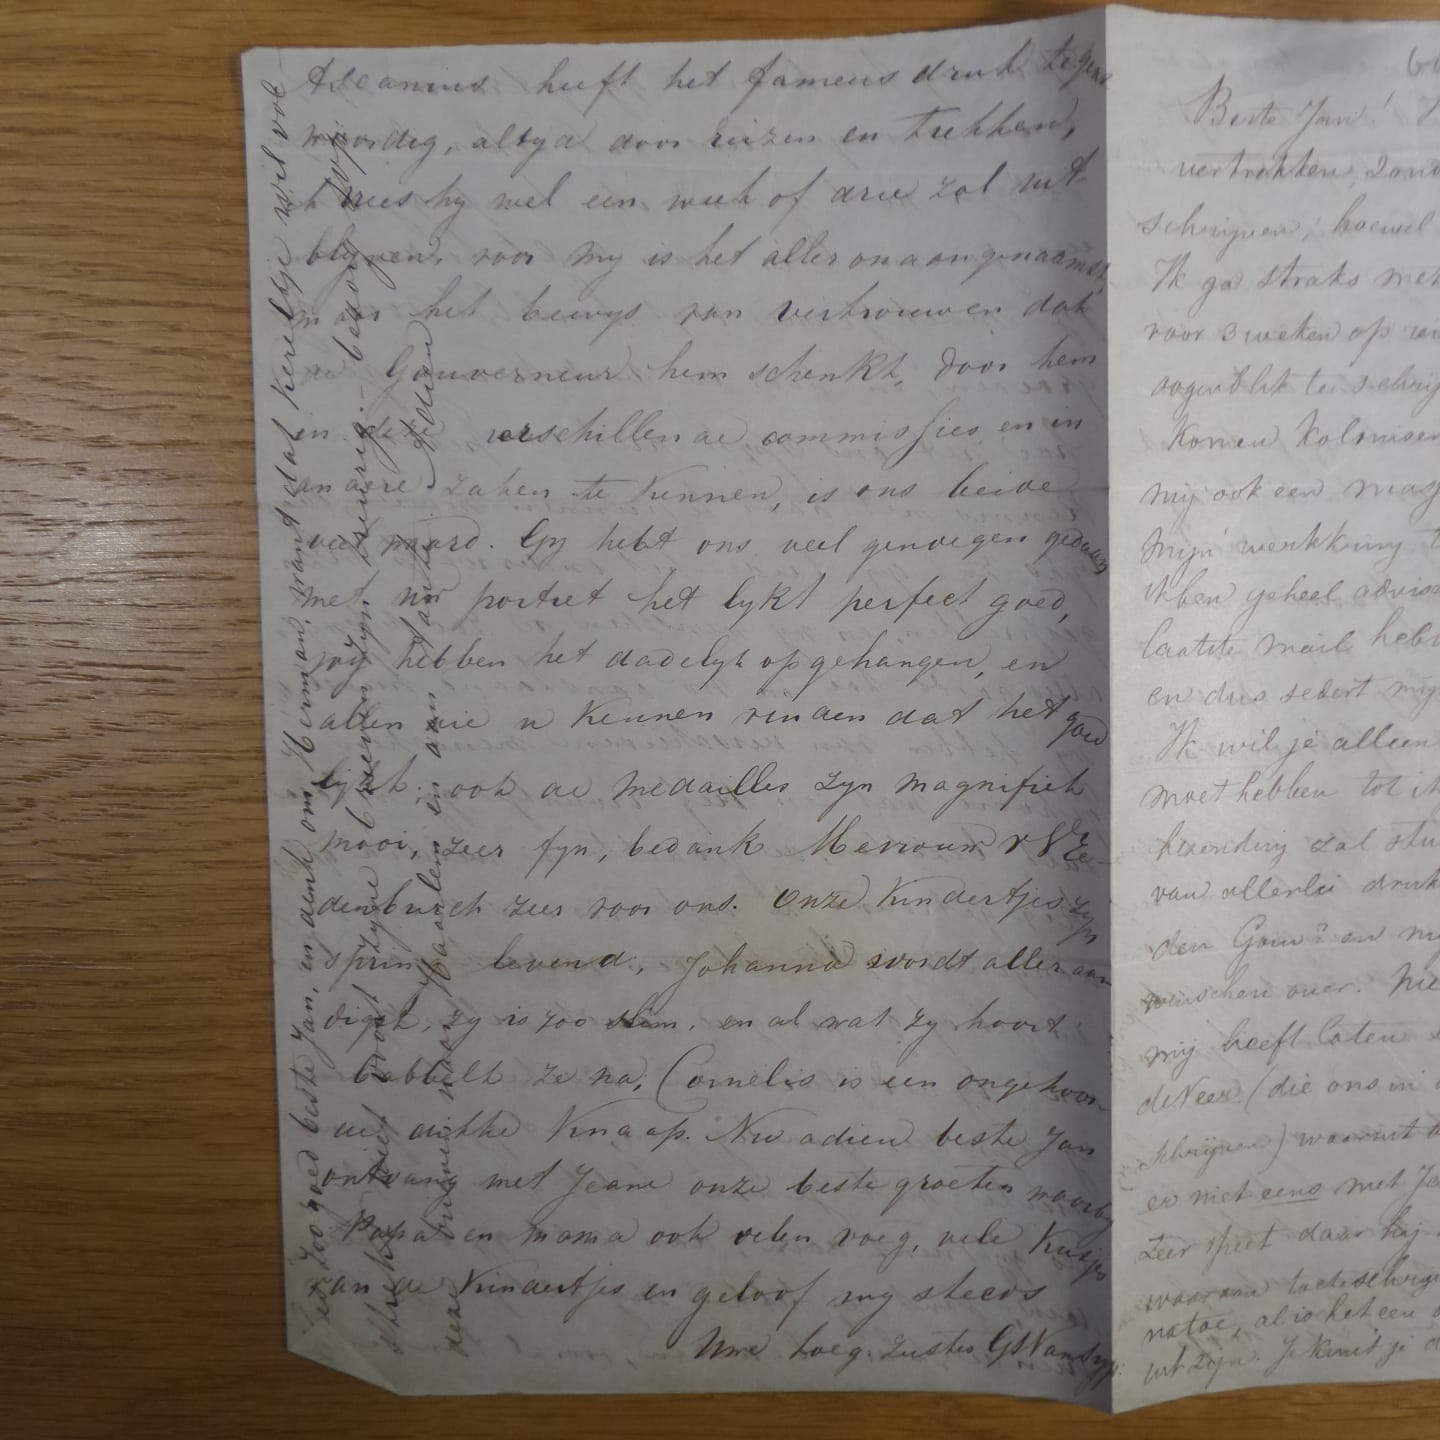 Adeanius heeft het fameus druk tegen-
woordig, altyd door reizen en trekken,
ik vrees hy wel een week of drie zal uit
blyven, voor my is het alleronaangenaamst,
maar het bewys van vertrouwen dat
de Gouverneur hem schenkt, door hem
in deze verschillende commissies en in
andere zaken te kennen, is ons beide
veel waard. Gy hebt ons veel genoegen gedaan
met uw portret het lykt perfect goed,
wy hebben het dadelyk opgehangen, en
allen die u kennen vinden dat het goed
lykt. ook de medailles zyn magnifiek
mooi, zeer fyn, bedank Mevrouw v
denburch zeer voor ons. Onze Kindertjes zyn
sprin levend, Johanna wordt alleraar-
digst, zy is zoo slim, en al wat zy hoort
babbelt ze na, Cornelis is een ongehoor-
de dikke Knaap. Nu adieu beste Jan
ontvang met Jeane onze beste groeten waarby
Papa en mama ook velen voeg, vele Kusjes
van de Kindertjes en geloof my steeds
Uwe toeg. zuster
zoo goed beste Jan, en denk om Herman, want dat Kereltje wil voor-
strekt niet voor zyne brieven zyn
deze brieven naar Haarlem en aan tante Adieu
Beste Jan!
vertrekken, zond
schrijven, hoewel
Ik ga straks met
voor 3 weken op rei
oogenblik te schrij
Komen Kolonisen
mij ook een mag
mijn werkkring t
Ik ben geheel advise
laatste mail heb
en dus sedert mij
Ik wil je alleen
moet hebben tot in
hezending zal stu
van allerlei druk
den Gouv? en m
wenschen over. Nie
mij heeft laten
de Veer (die ons in
schrijven) waaruit
er niet eens met Je
zeer spiet daar hij
waaraan toeteschrijv
natoe, al is het een
uit zijn. Je kunt je d